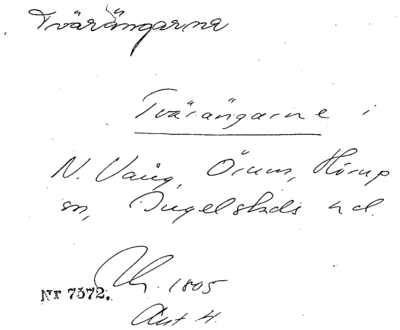 Tvärängarne
Tvärängarne i
N. Vång, Örum, Hörup
sn, Ingelstads hd.
1805
Nr 7572.
Akt 4.